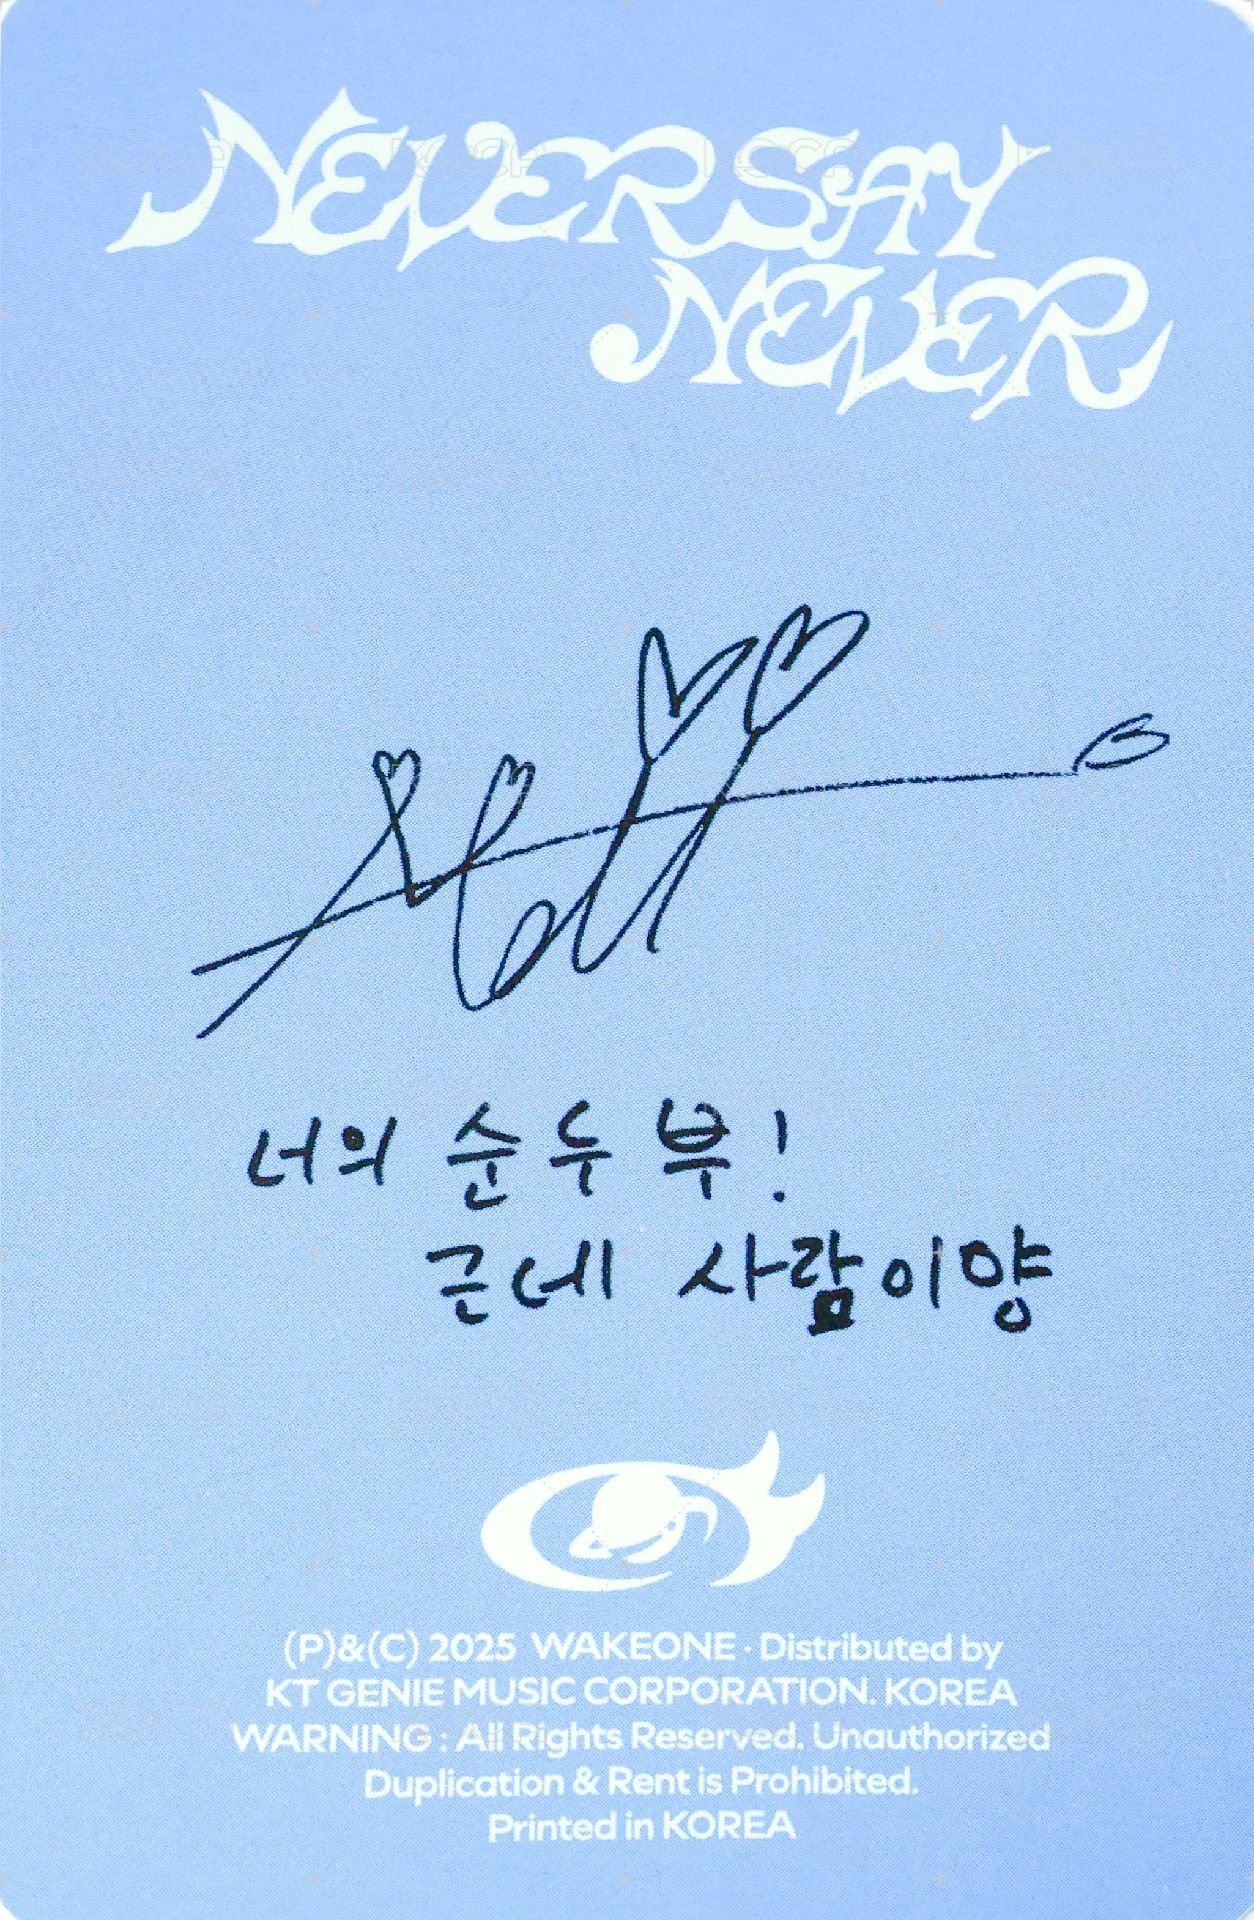 NEVER SAY
NEVER
너의 순두부!
근데 사람이양
(P)&(C) 2025 WAKEONE · Distributed by
KT GENIE MUSIC CORPORATION. KOREA
WARNING : All Rights Reserved. Unauthorized
Duplication & Rent is Prohibited.
Printed in KOREA